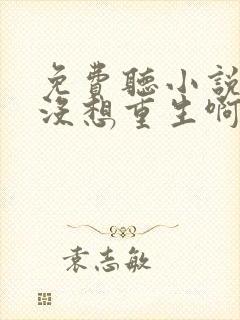 免費聽小說
沒想重生啊
袁志敏